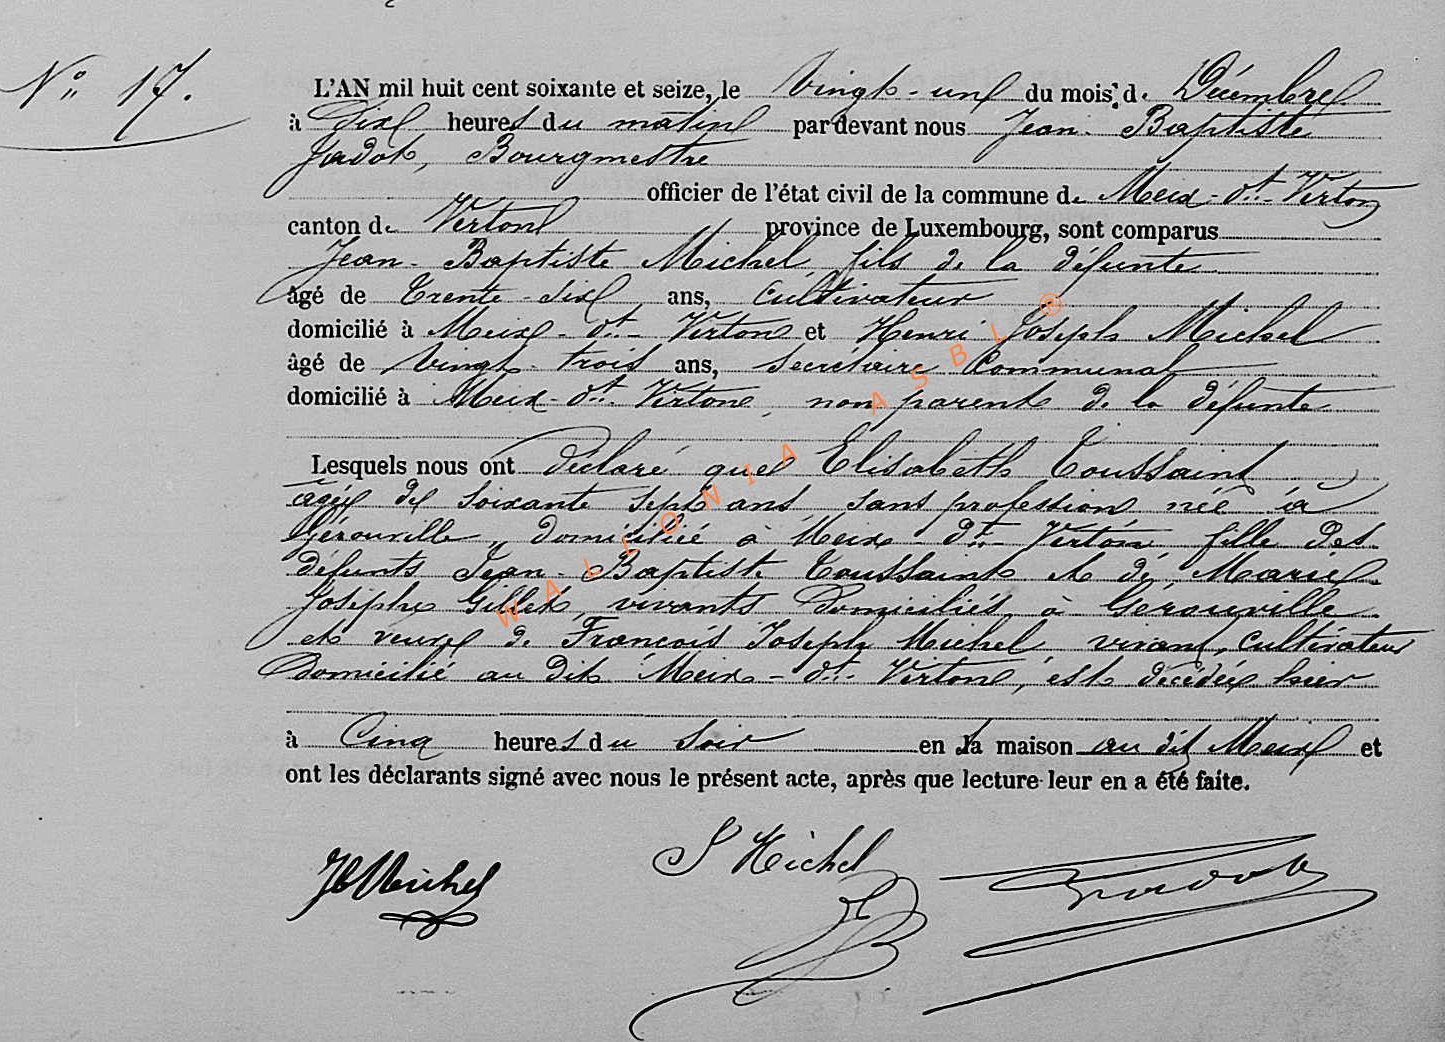 N° 17.
L'AN mil huit cent soixante et seize, le Vingt-un du mois de Décembre
à Dix heures du matin par devant nous Jean-Baptiste
Jadot, Bourgmestre
officier de l'état civil de la commune de Meix-dt-Virton
canton de Virton province de Luxembourg, sont comparus
Jean-Baptiste Michel, fils de la défunte
âgé de Trente-six ans, Cultivateur
domicilié à Meix-dt-Virton et Henri Joseph Michel
âgé de Vingt-trois ans, Secrétaire Communal
domicilié à Meix-dt-Virton, non parent de la défunte
Lesquels nous ont déclaré que Elisabeth Toussaint
agée de soixante sept ans sans profession née à
Gérouville, domiciliée à Meix-dt-Virton, fille des
défunts Jean-Baptiste Toussaint et de Marie
Josèphe Gillet, vivants domiciliés à Gérouville
et veuve de François Joseph Michel vivant, cultivateur
Domicilié au dit Meix-dt-Virton, est décédée hier
à Cinq heures du soir en la maison au dit Meix et
ont les déclarants signé avec nous le présent acte, après que lecture leur en a été faite.
JB Michel
Michel
Jadot
WALLONIA ASBL ®